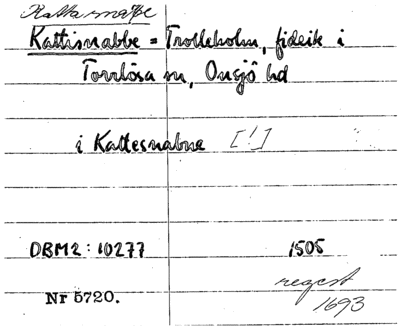 Kattarnabbe
Kattisnabbe = Trolleholm, fideik i
Torrlösa sn, Onsjö hd
i Kattesnabne [!]
DBM2: 10277 1505
regest
Nr 5720. 1693